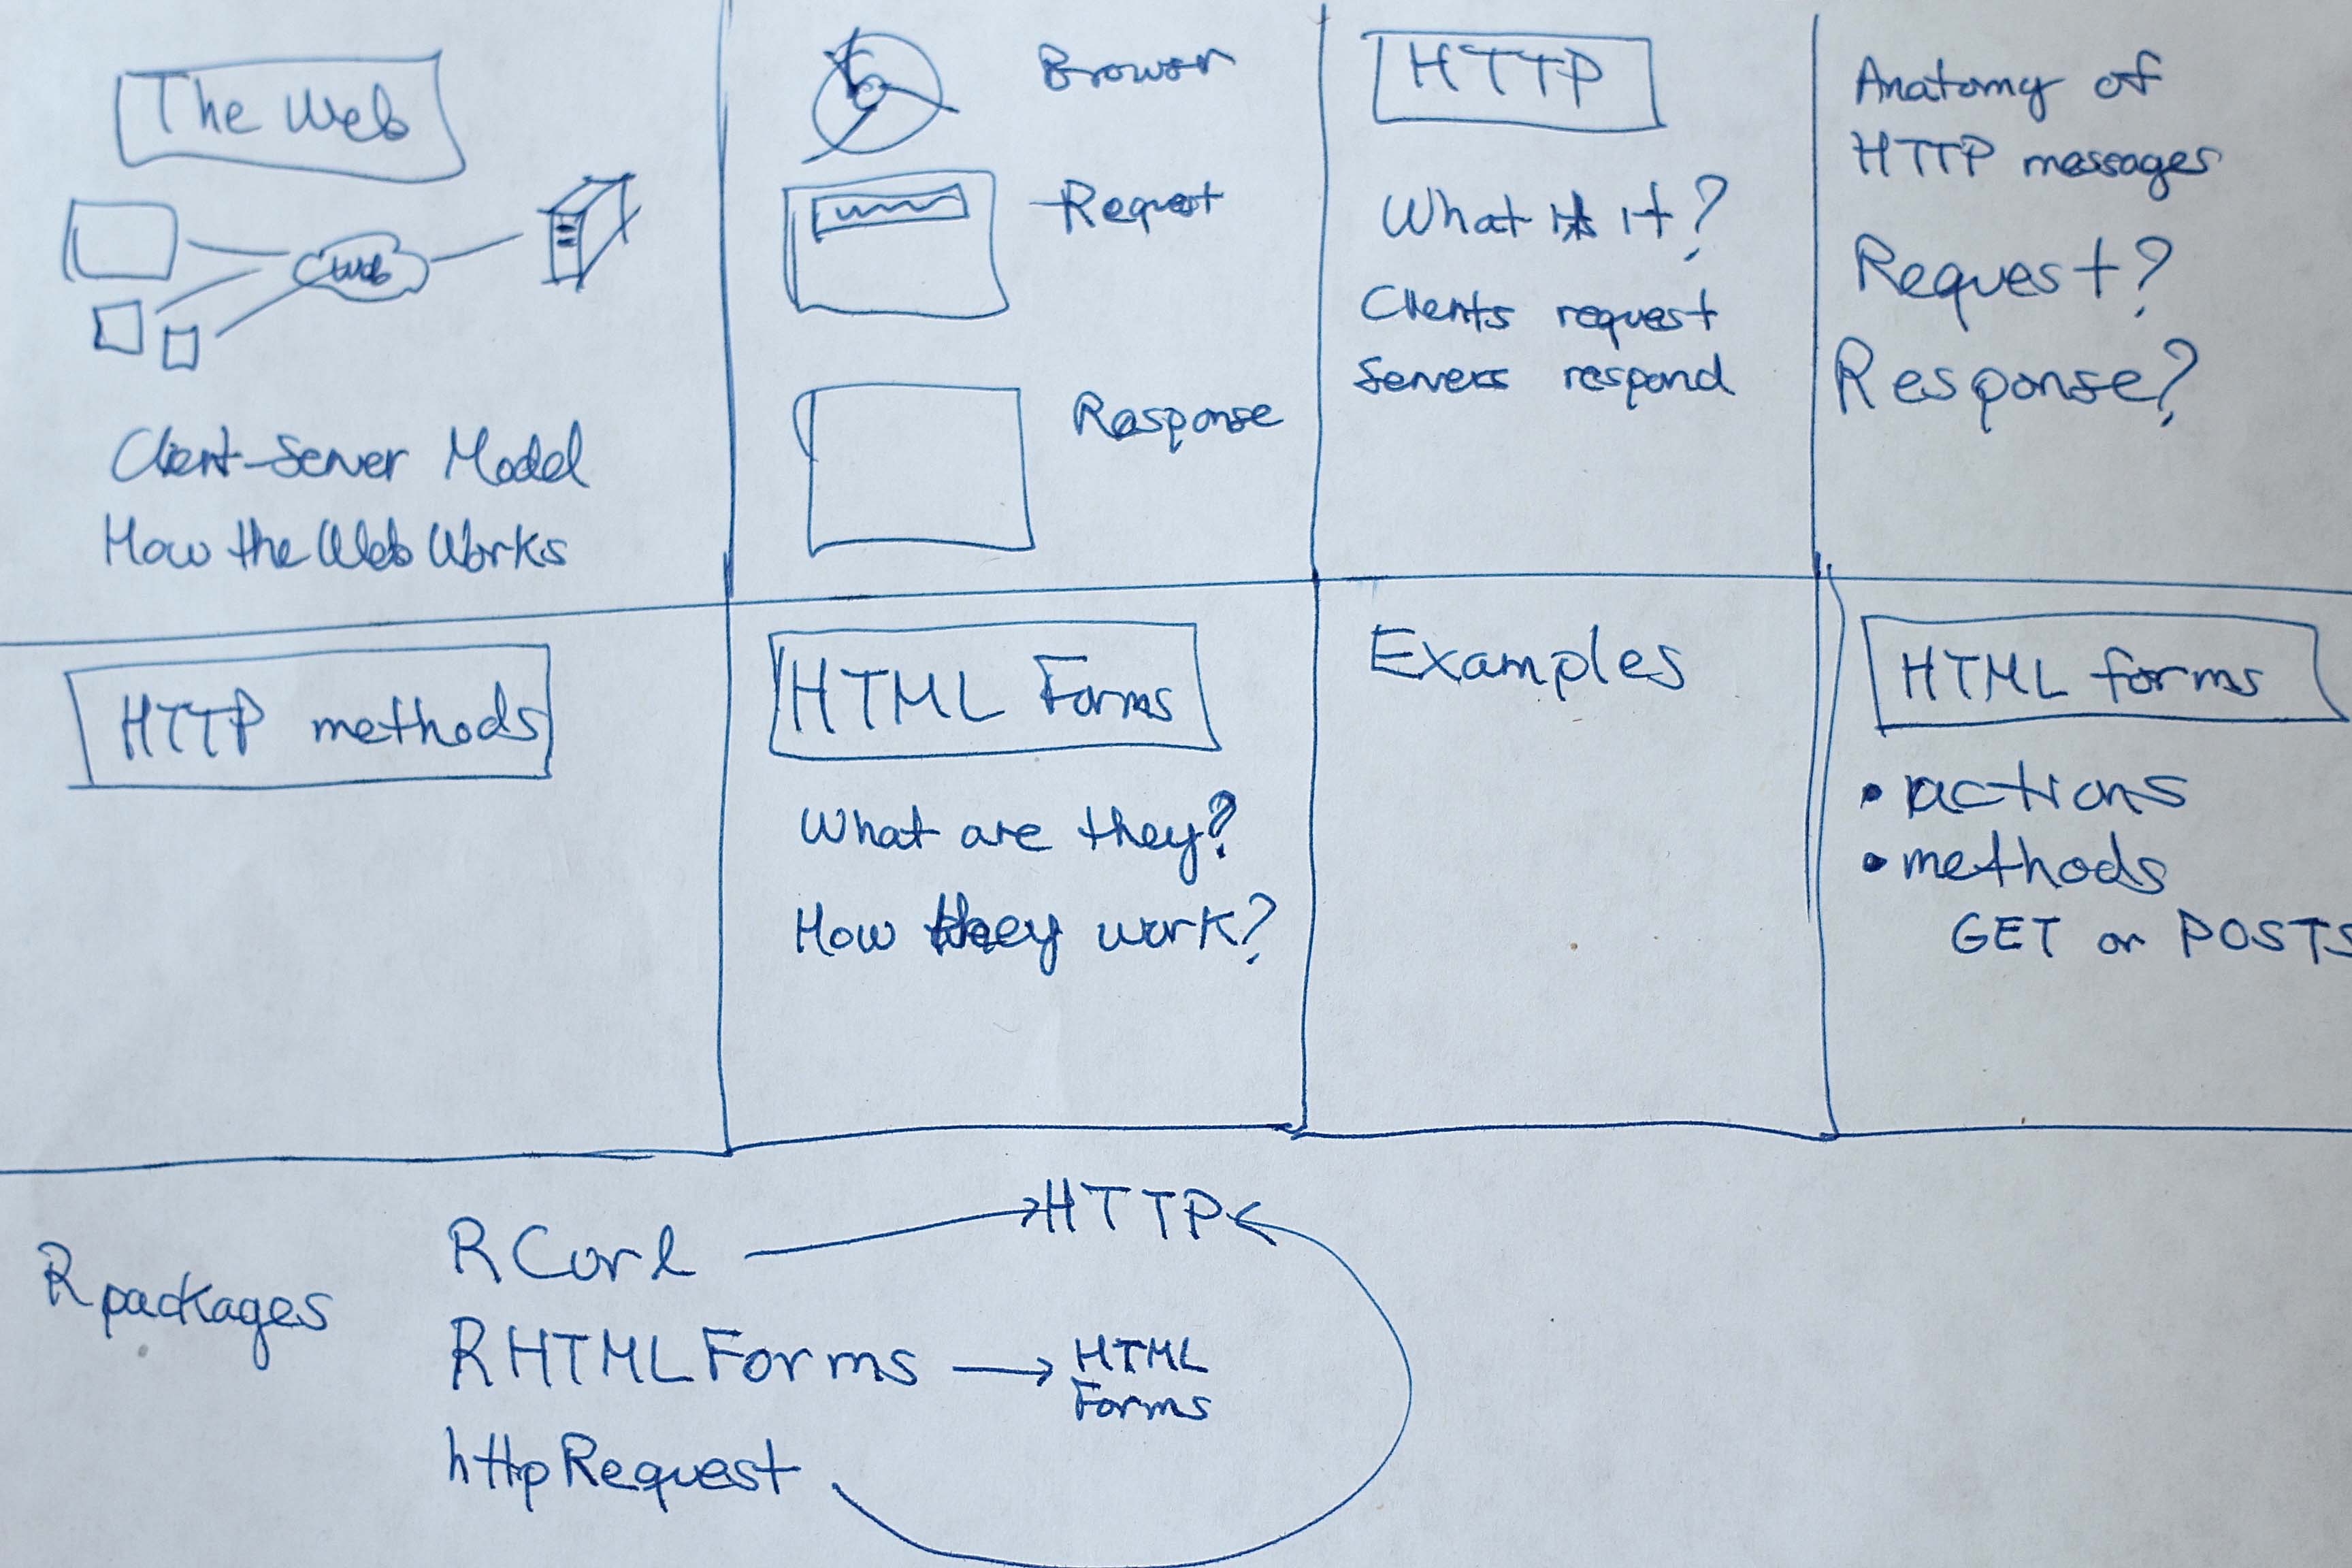 The Web
Web
Client-Server Model
How the Web Works
Browser
Request
Response
HTTP
What is it?
Clients request
Servers respond
Anatomy of
HTTP messages
Request?
Response?
HTTP methods
HTML Forms
What are they?
How they work?
Examples
HTML forms
• actions
• methods
GET or POSTS
R packages
RCurl
HTTP
RHTMLForms
HTML
Forms
httpRequest